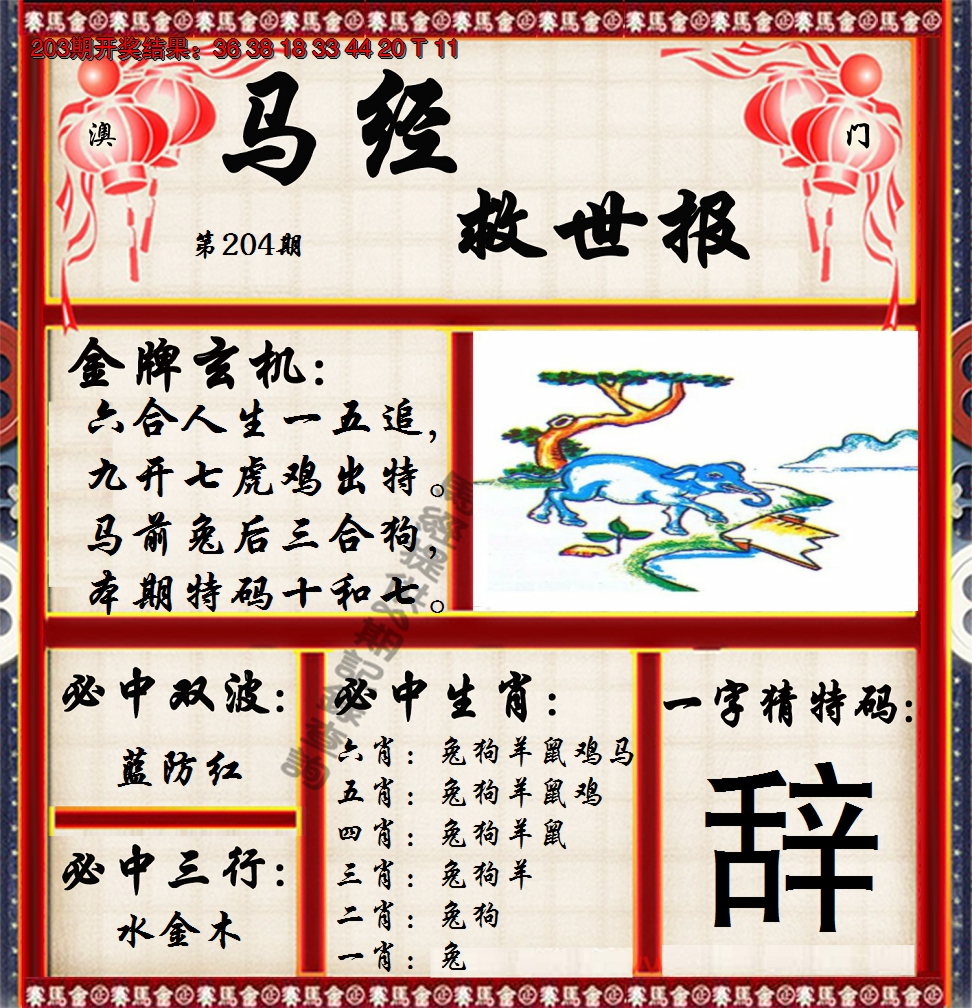 203期开奖结果：36 38 18 33 44 20 T 11
澳
门
马经
救世报
第204期
金牌玄机：
六合人生一五追，
九开七虎鸡出特。
马前兔后三合狗，
本期特码十和七。
必中双波：
蓝防红
必中三行：
水金木
必中生肖：
六肖：兔狗羊鼠鸡马
五肖：兔狗羊鼠鸡
四肖：兔狗羊鼠
三肖：兔狗羊
二肖：兔狗
一肖：兔
一字猜特码：
辞